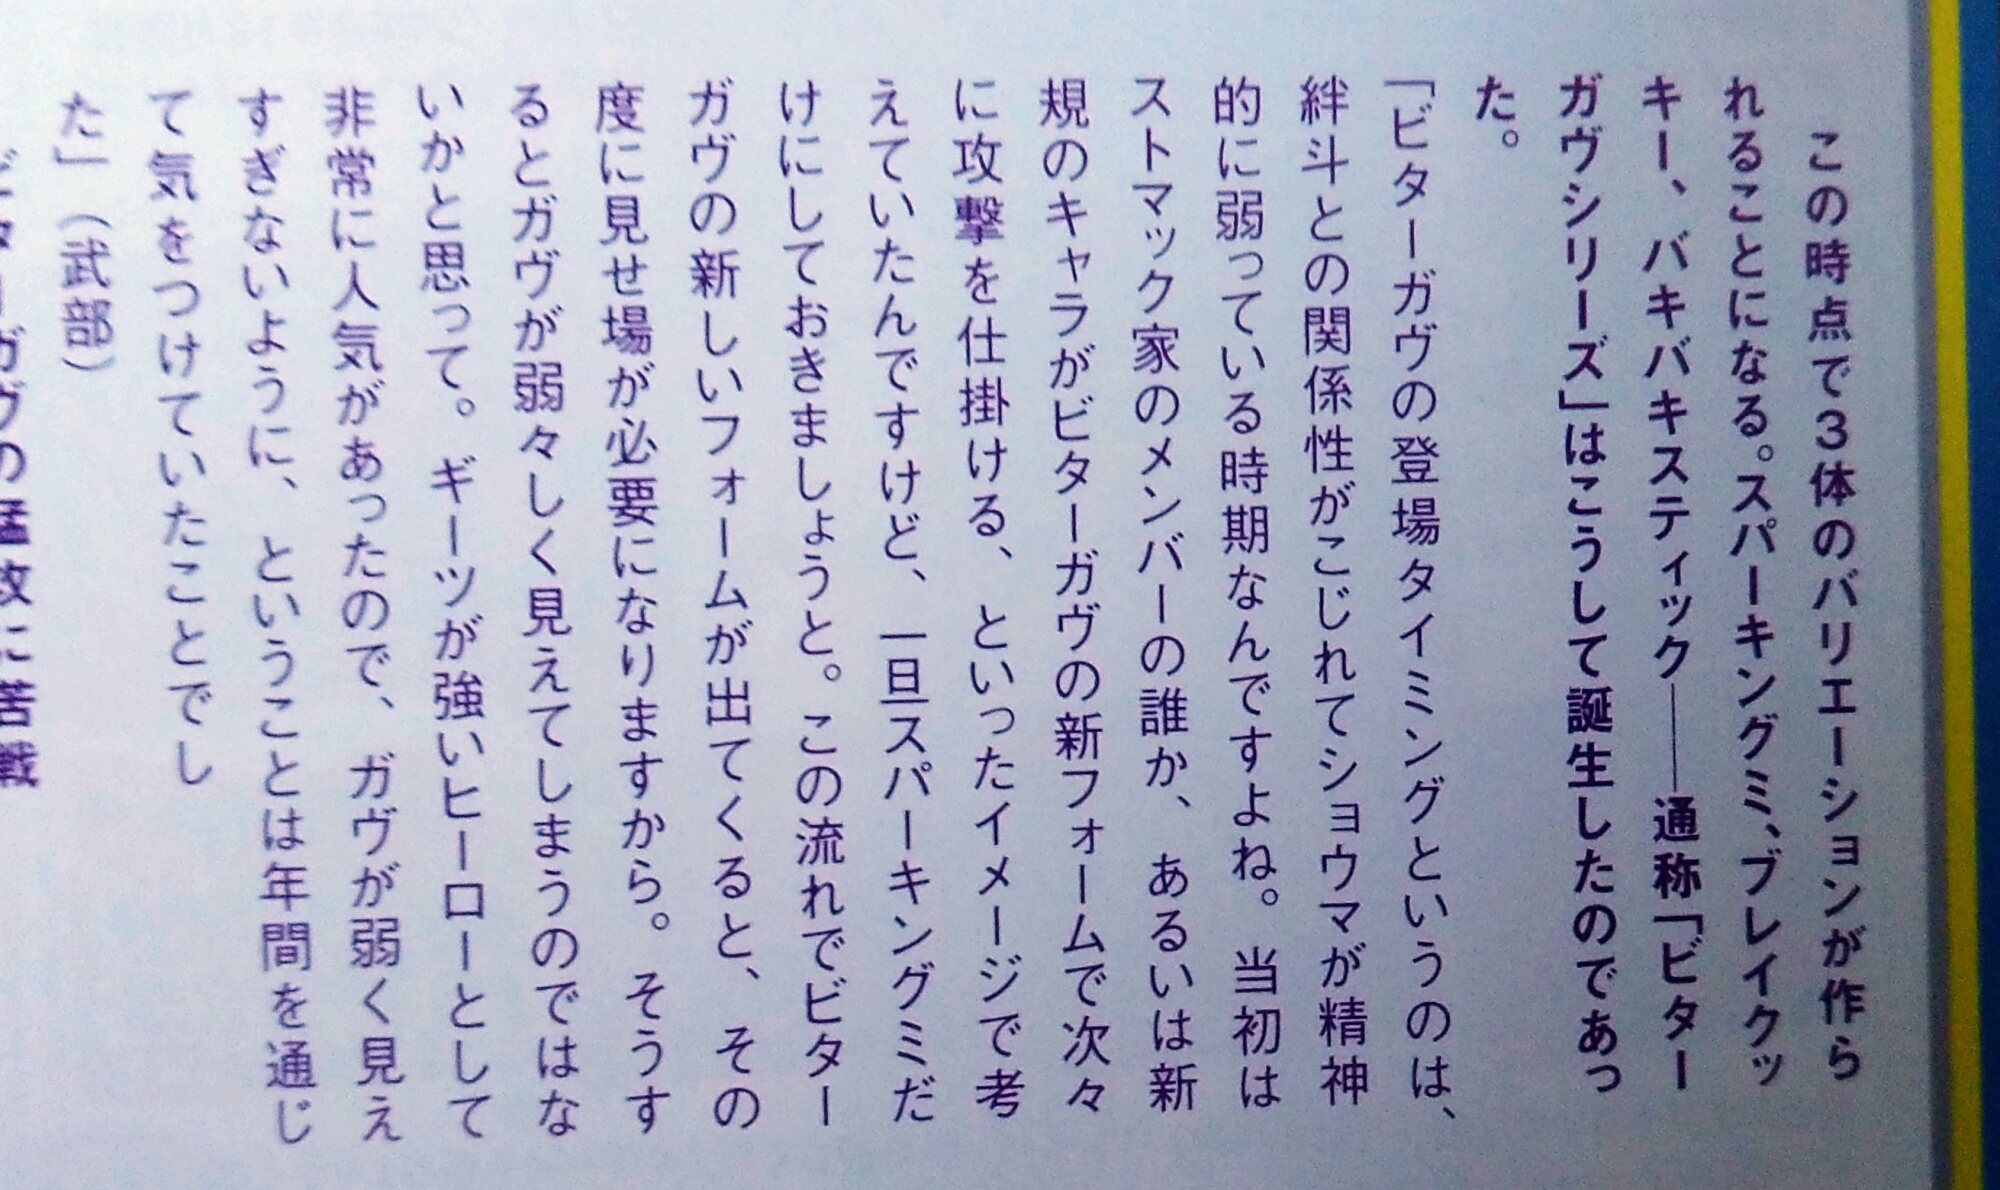 この時点で3体のバリエーションが作ら
れることになる。スパーキングミ、ブレイクッ
キー、バキバキスティック――通称「ビター
ガヴシリーズ」はこうして誕生したのであっ
た。
「ビターガヴの登場タイミングというのは、
絆斗との関係性がこじれてショウマが精神
的に弱っている時期なんですよね。当初は
ストマック家のメンバーの誰か、あるいは新
規のキャラがビターガヴの新フォームで次々
に攻撃を仕掛ける、といったイメージで考
えていたんですけど、一旦スパーキングミだ
けにしておきましょうと。この流れでビター
ガヴの新しいフォームが出てくると、その
度に見せ場が必要になりますから。そうす
るとガヴが弱々しく見えてしまうのではな
いかと思って。ギーツが強いヒーローとして
非常に人気があったので、ガヴが弱く見え
すぎないように、ということは年間を通じ
て気をつけていたことでし
た」（武部）
ビターガヴの猛攻に苦戦